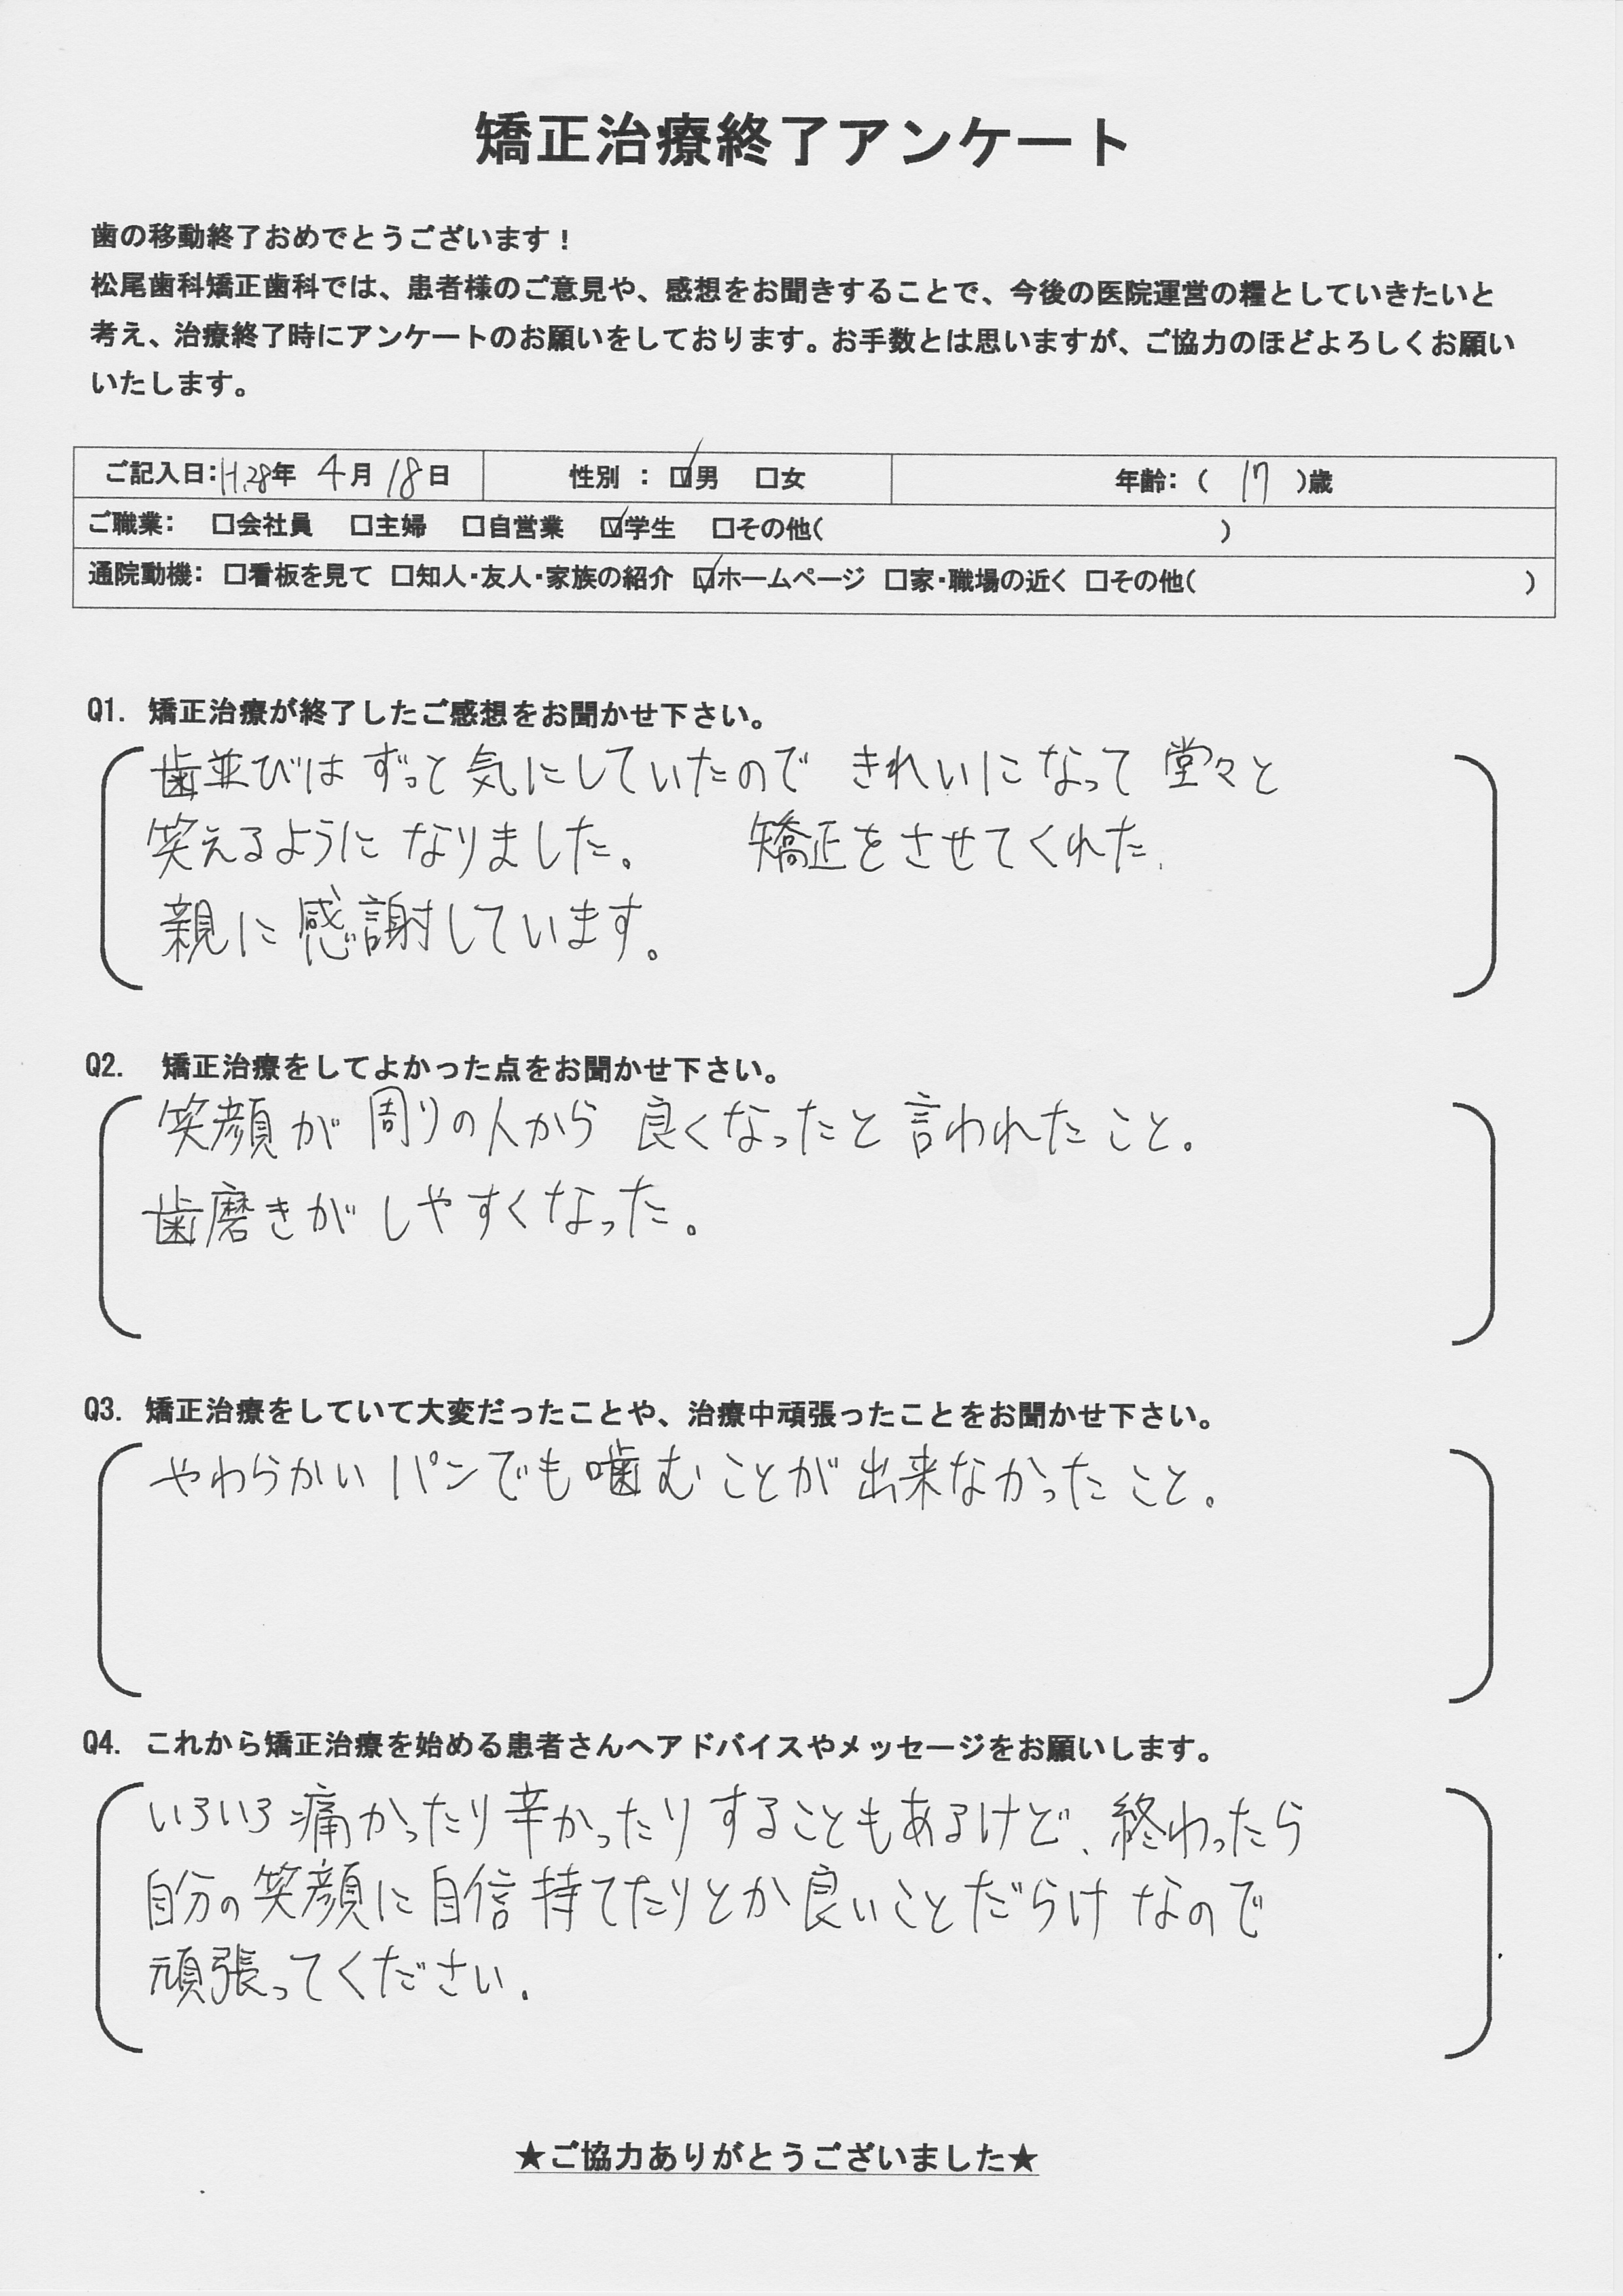 矯正治療終了アンケート
歯の移動終了おめでとうございます！
松尾歯科矯正歯科では、患者様のご意見や、感想をお聞きすることで、今後の医院運営の糧としていきたいと
考え、治療終了時にアンケートのお願いをしております。お手数とは思いますが、ご協力のほどよろしくお願い
いたします。
ご記入日：H.28年 4月 18日 性別 ： ☑男 □女 年齢：（ 17 ）歳
ご職業： □会社員 □主婦 □自営業 ☑学生 □その他（ ）
通院動機： □看板を見て □知人・友人・家族の紹介 ☑ホームページ □家・職場の近く □その他（ ）
Q1. 矯正治療が終了したご感想をお聞かせ下さい。
歯並びは ずっと 気にしていたので きれいに なって 堂々と
笑えるように なりました。 矯正をさせてくれた
親に 感謝しています。
Q2. 矯正治療をしてよかった点をお聞かせ下さい。
笑顔が 周りの人から 良くなったと 言われたこと。
歯磨きが しやすくなった。
Q3. 矯正治療をしていて大変だったことや、治療中頑張ったことをお聞かせ下さい。
やわらかい パンでも 噛む ことが 出来なかった こと。
Q4. これから矯正治療を始める患者さんへアドバイスやメッセージをお願いします。
いろいろ 痛かったり 辛かったり することもあるけど、終わったら
自分の笑顔に 自信 持てたりとか 良いことだらけ なので
頑張ってください.
★ご協力ありがとうございました★